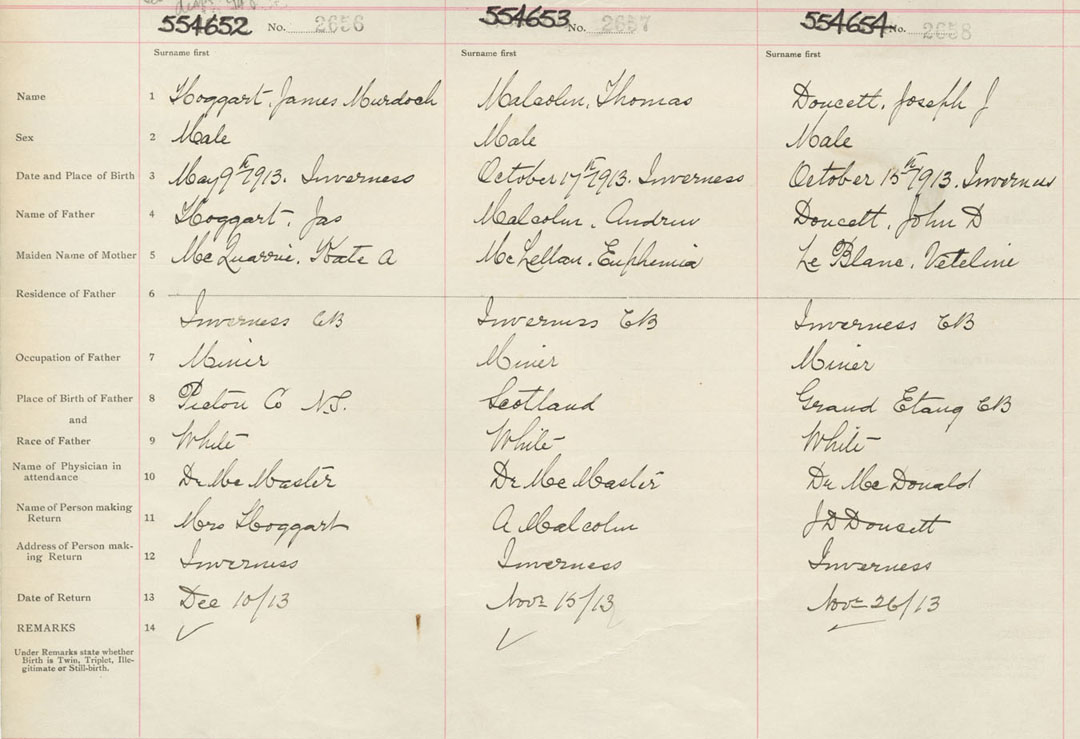 554652 No. 2656 554653 No. 2657 554654 No. 2658
Surname first Surname first Surname first
Name 1 Hoggart, James Murdoch Malcolm, Thomas Doucett, Joseph J
Sex 2 Male Male Male
Date and Place of Birth 3 May 9th 1913. Inverness October 17th 1913. Inverness October 15th 1913. Inverness
Name of Father 4 Hoggart, Jas Malcolm, Andrew Doucett, John D
Maiden Name of Mother 5 McQuarrie, Kate A McLellan, Euphemia Le Blanc, Veteline
Residence of Father 6
Inverness CB Inverness CB Inverness CB
Occupation of Father 7 Miner Miner Miner
Place of Birth of Father 8 Pictou Co N.S. Scotland Grand Etang CB
and
Race of Father 9 White White White
Name of Physician in
attendance 10 Dr McMaster Dr McMaster Dr McDonald
Name of Person making
Return 11 Mrs Hoggart A Malcolm J D Doucett
Address of Person mak-
ing Return 12 Inverness Inverness Inverness
Date of Return 13 Dec 10/13 Novr 15/13 Novr 26/13
REMARKS 14 ✓ ✓
Under Remarks state whether
Birth is Twin, Triplet, Ille-
gitimate or Still-birth.